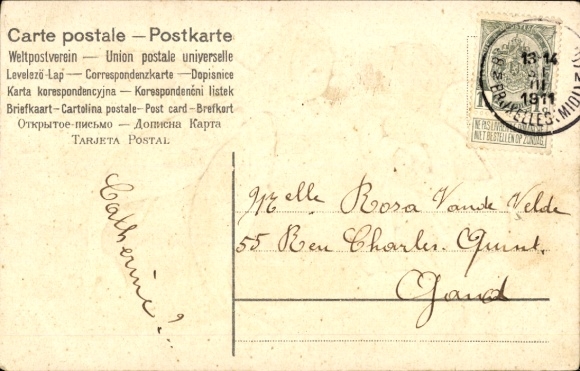 Carte postale — Postkarte
Weltpostverein — Union postale universelle
Levelező-Lap — Correspondenzkarte — Dopisnice
Karta korespondencyjna — Korespondenční listek
Briefkaart - Cartolina postale - Post card - Brefkort
Открытое-письмо — Дописна Карта
Tarjeta Postal
13-14
1911
NE PAS LIVRER LE DIMANCHE
NIET BESTELLEN OP ZONDAG
Catherine?
Melle Rosa Vande Velde
55 Reu Charles-Quint.
Gand